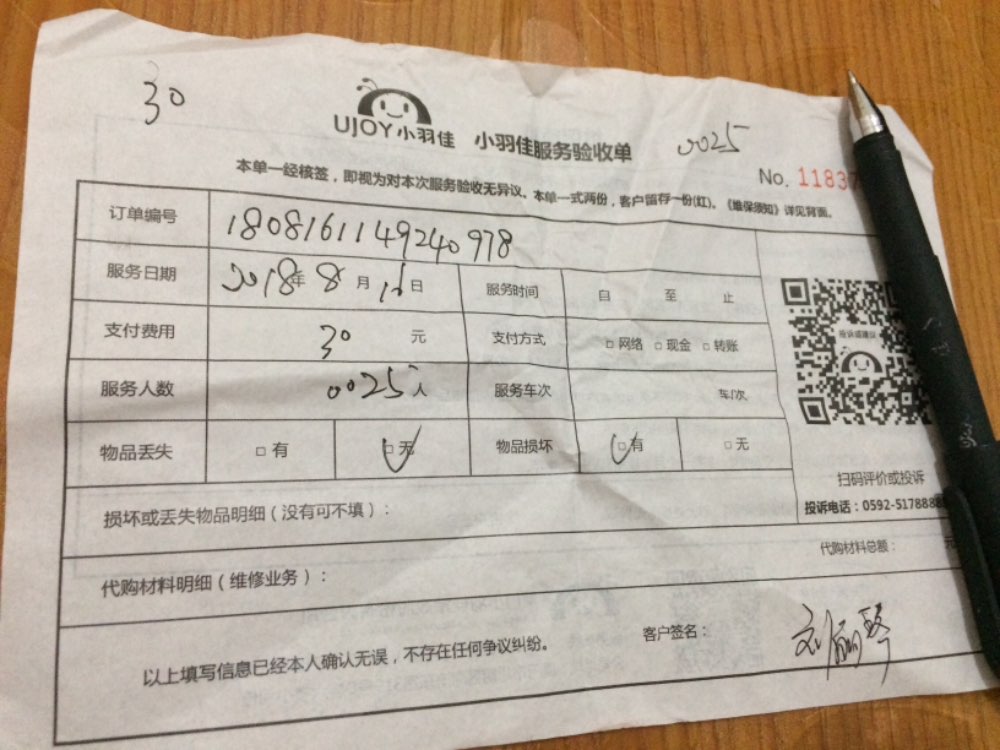 30
UJOY小羽佳 小羽佳服务验收单 0025
No. 1183
本单一经核签，即视为对本次服务验收无异议。本单一式两份，客户留存一份(红)。《维保须知》详见背面。
订单编号 1808161149240978
服务日期 2018年8月16日 服务时间 自 至 止
支付费用 30 元 支付方式 □网络 □现金 □转账
服务人数 0025人 服务车次 车/次
投诉或建议
物品丢失 □有 □无 物品损坏 □有 □无
扫码评价或投诉
投诉电话：0592-5178888
损坏或丢失物品明细（没有可不填）：
代购材料总额： 元
代购材料明细（维修业务）：
以上填写信息已经本人确认无误，不存在任何争议纠纷。 客户签名：